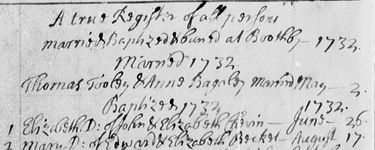 A true Register of all persons
married Baptized & buried at Boothby 1732.
Married 1732
Thomas Tooley & Anne Bagaley Married May 2.
Baptized 1732 1732.
1 Elizabeth D: of John & Elizabeth June 26.
2 Mary D: of Edward & Elizabeth Becket August 17.